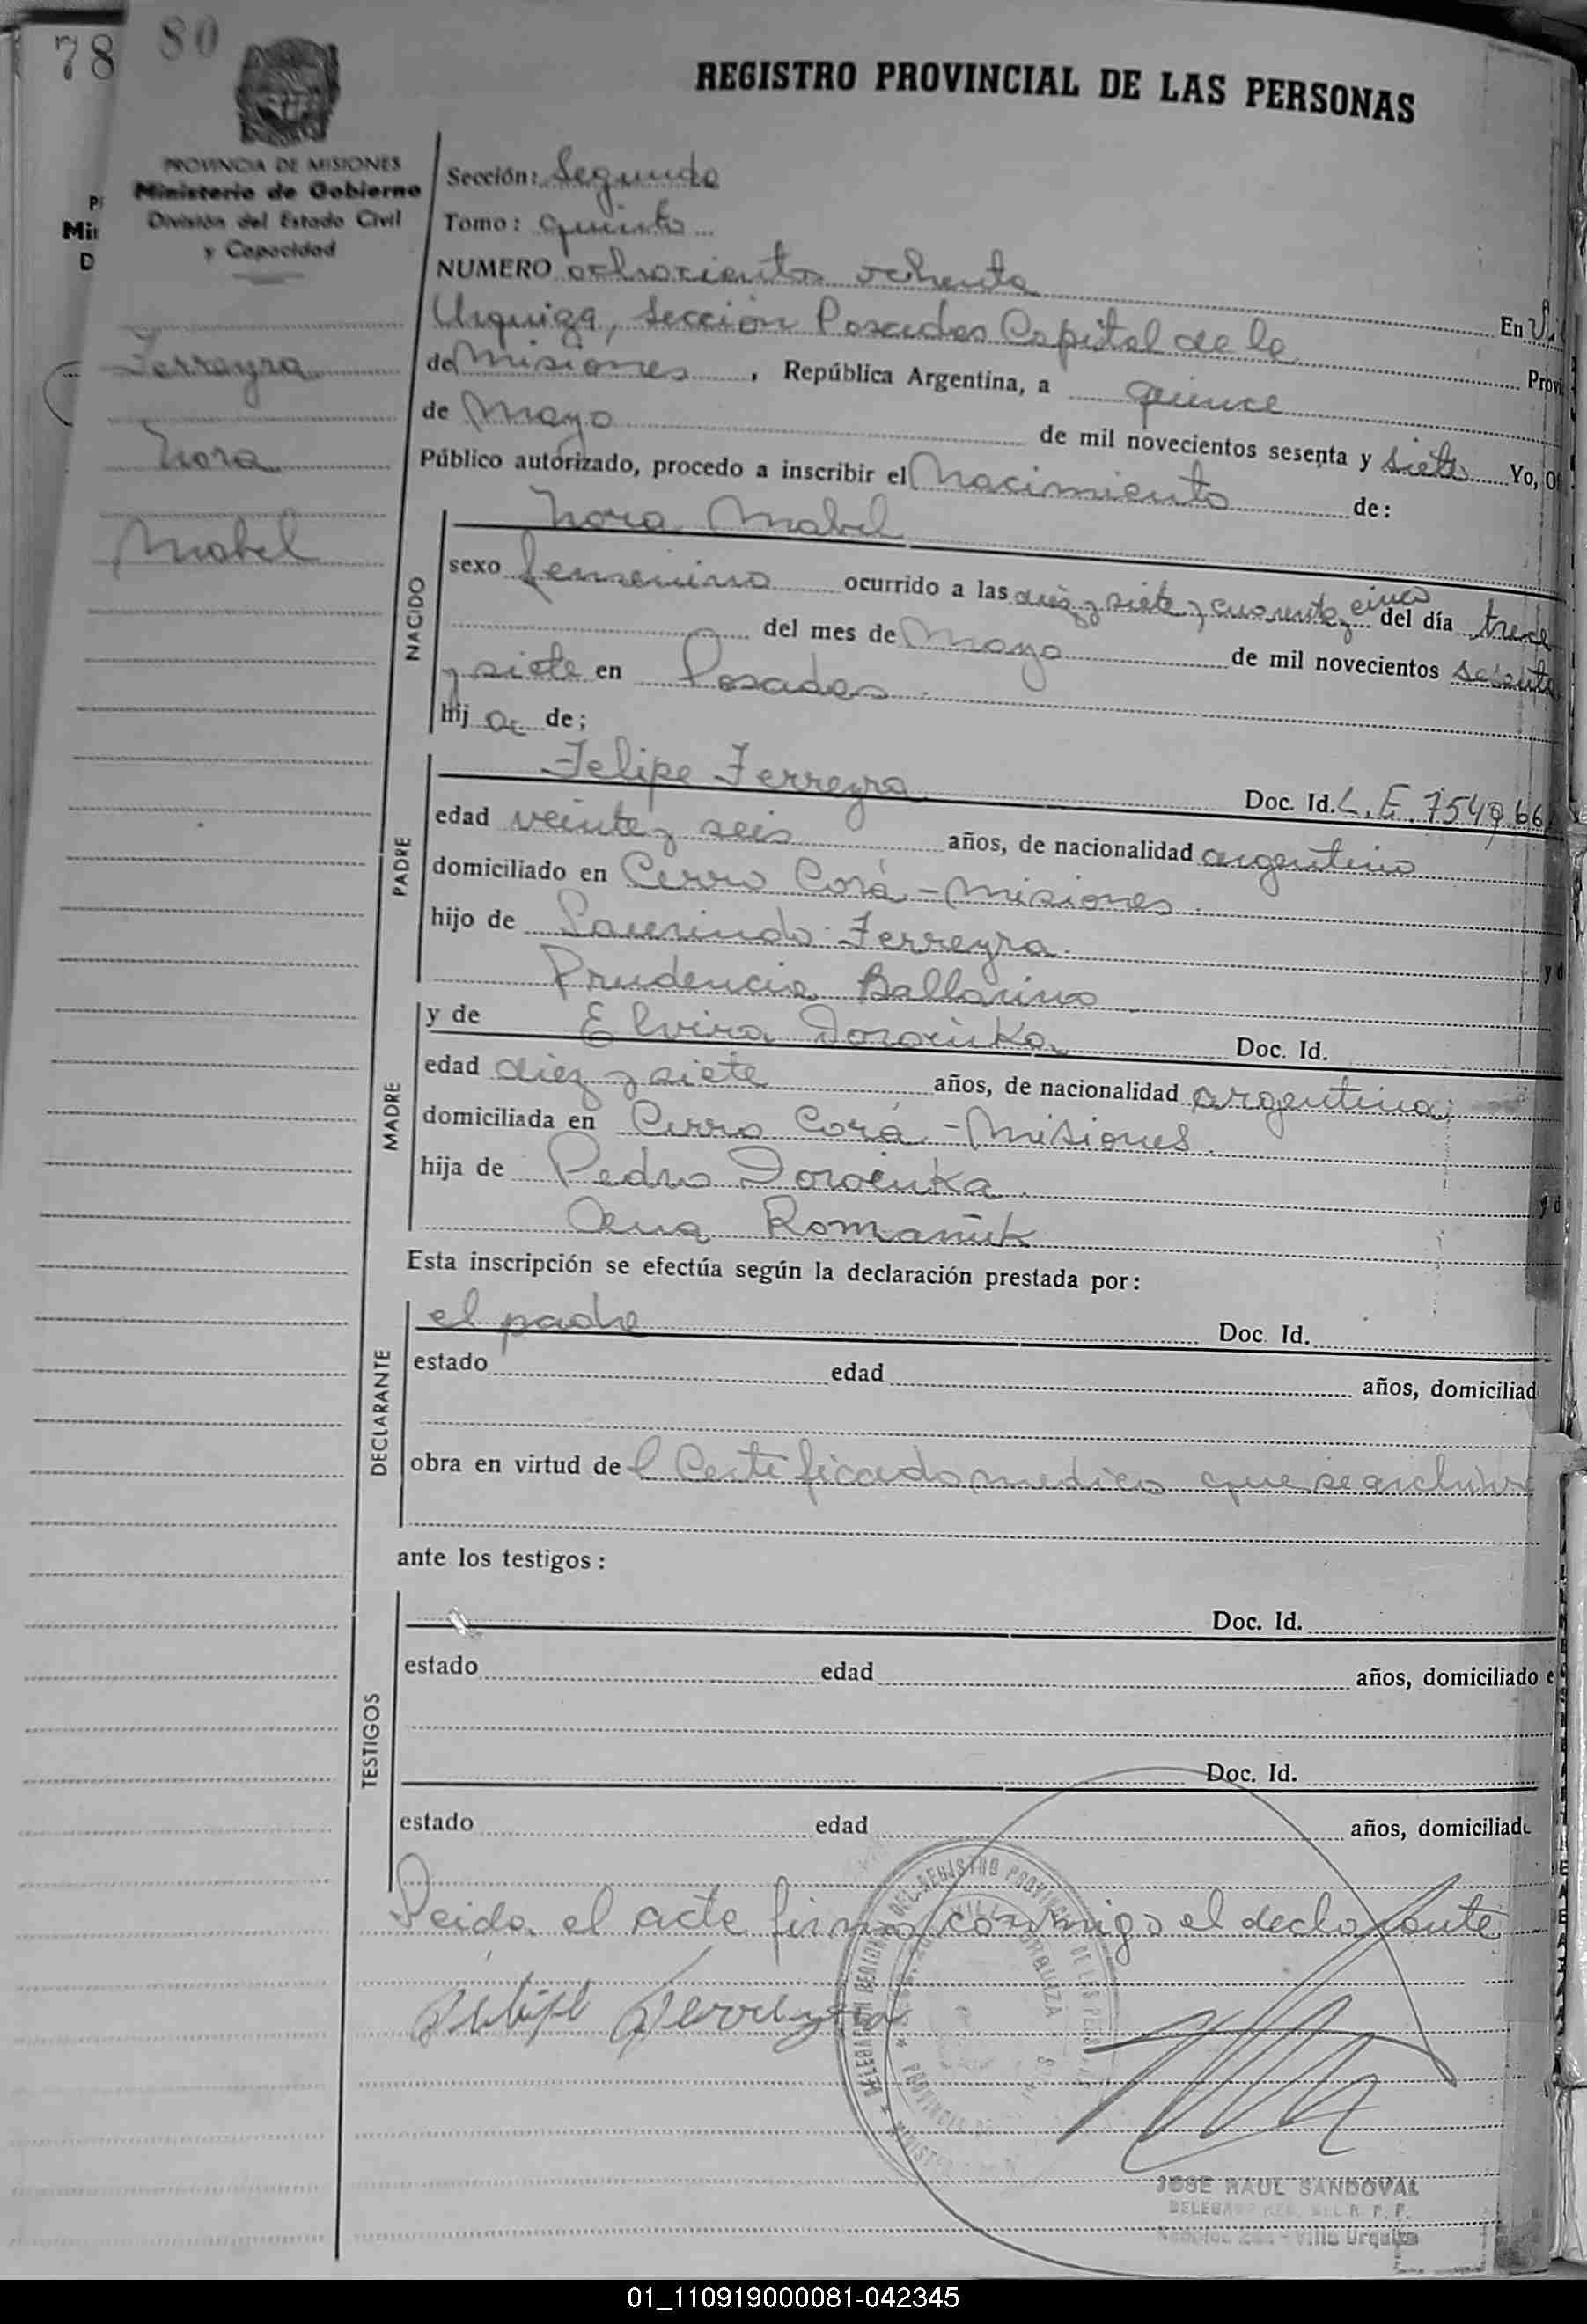 78 80
REGISTRO PROVINCIAL DE LAS PERSONAS
PROVINCIA DE MISIONES
Ministerio de Gobierno
División del Estado Civil
y Capacidad
Ferreyra
Nora
Mabel
Sección: Segunda
Tomo: Quinto
NUMERO ochocientos ochenta En
Urquiza, Sección Posadas Capital de la Provi
de Misiones, República Argentina, a quince
de Mayo de mil novecientos sesenta y siete Yo, Of
Público autorizado, procedo a inscribir el Nacimiento de:
Nora Mabel
NACIDO
sexo femenino ocurrido a las diez y siete y cuarenta y cinco del día trece
del mes de Mayo de mil novecientos sesenta
y siete en Posadas.
hij a de;
PADRE
Felipe Ferreyra Doc. Id. L.E. 754966
edad veinte y seis años, de nacionalidad argentino
domiciliado en Cerro Corá - Misiones.
hijo de Ferreyra. y d
Prudencia Ballarino
MADRE
y de Elvira Doroñuka Doc. Id.
edad diez y siete años, de nacionalidad argentina
domiciliada en Cerro Corá - Misiones.
hija de Pedro Doroñuka. y d
Ana Romañuk
Esta inscripción se efectúa según la declaración prestada por:
DECLARANTE
el padre Doc. Id.
estado edad años, domiciliad
obra en virtud de l Certificado medico que se archiva
ante los testigos:
TESTIGOS
Doc. Id.
estado edad años, domiciliado e
Doc. Id.
estado edad años, domiciliado
Leida el acta firma conmigo el declarante
Felipe Ferreyra
JOSE RAUL SANDOVAL
Villa Urquiza
01_110919000081-042345